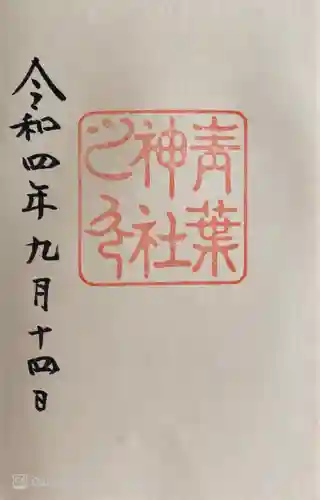 青葉
神社
令和四年九月十四日